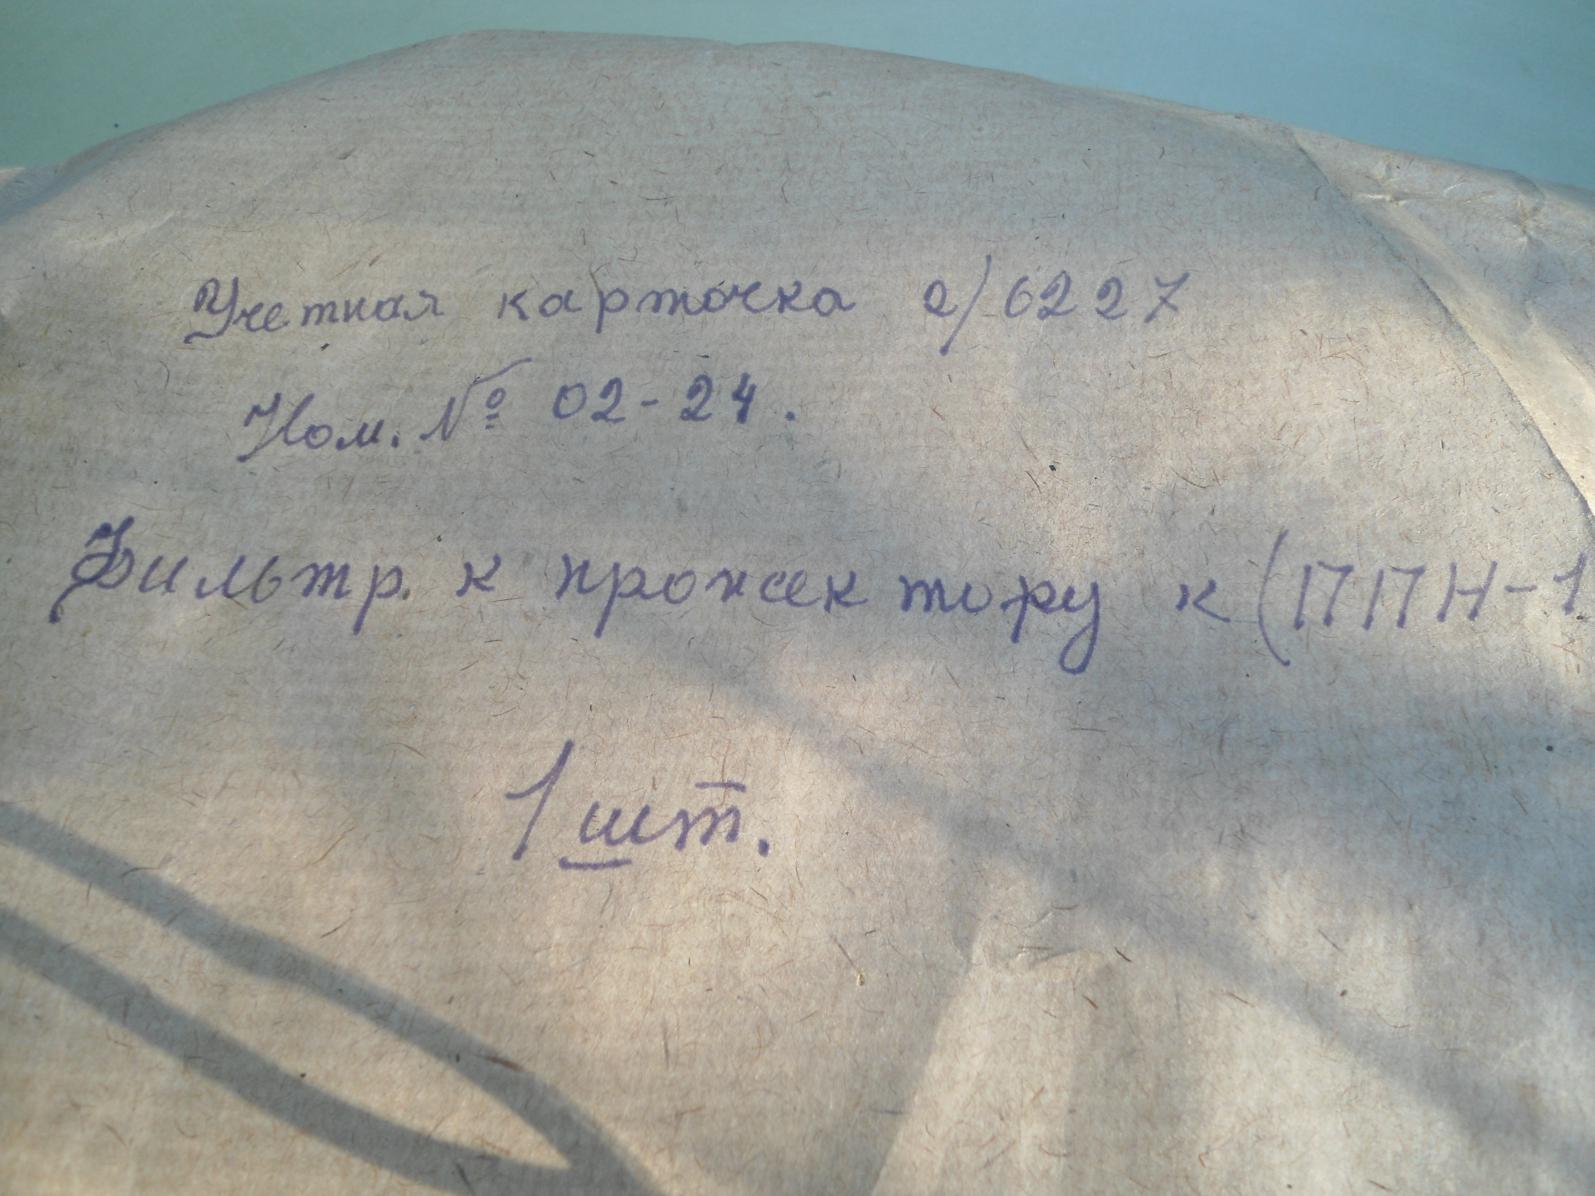 Учетная карточка а/6227
Ном. № 02-24.
Фильтр. к прожектору к (ППН-1
1 шт.